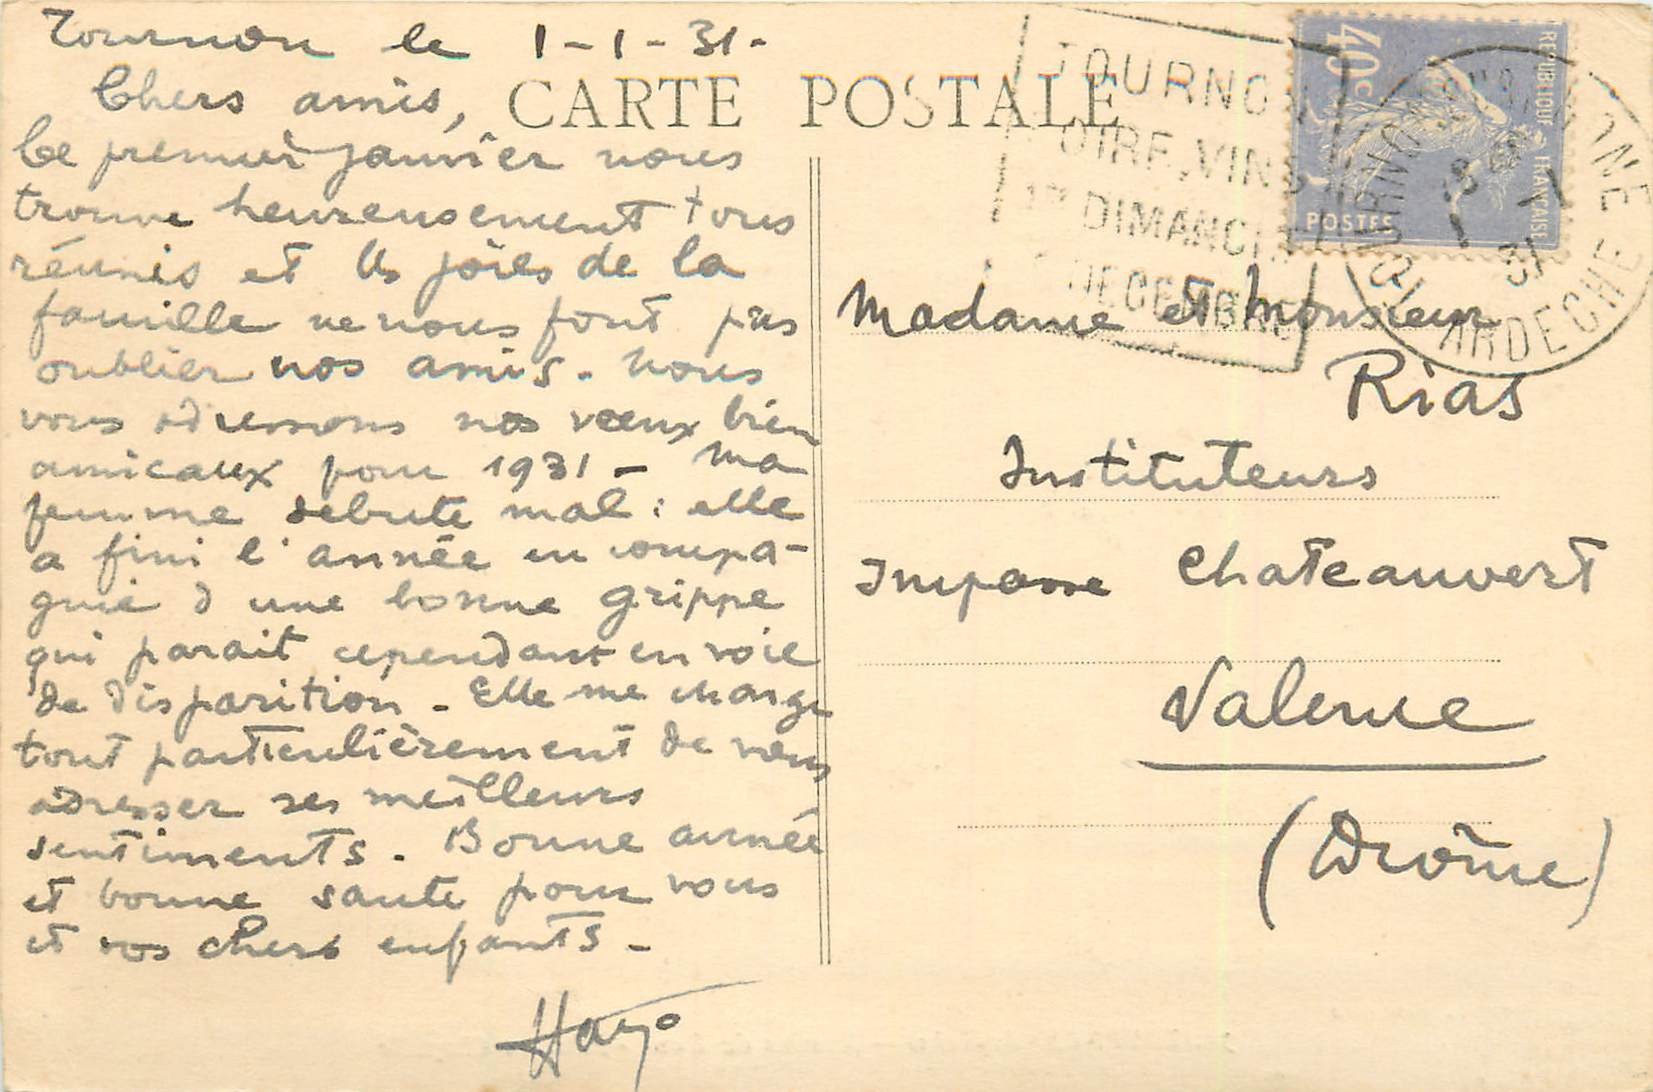 Tournon le 1-1-31-
Chers amis,
CARTE POSTALE
Ce premier janvier nous
trouve heureusement tous
réunis et les joies de la
famille ne nous font pas
oublier nos amis. Nous
vous adressons nos vœux bien
amicaux pour 1931 - Ma
femme débute mal : elle
a fini l'année en compa-
gnie d'une bonne grippe
qui parait cependant en voie
de disparition - Elle me charge
tout particulièrement de vous
adresser ses meilleurs
sentiments. Bonne année
et bonne santé pour vous
et vos chers enfants -
TOURNON
OIRE VINS
1er DIMANCH
DECEMBRE
40c
REPUBLIQUE FRANÇAISE
POSTES
ARDECHE
1
31
Madame et Monsieur
Rias
Instituteurs
Impasse Chateauvert
Valence
(Drôme)